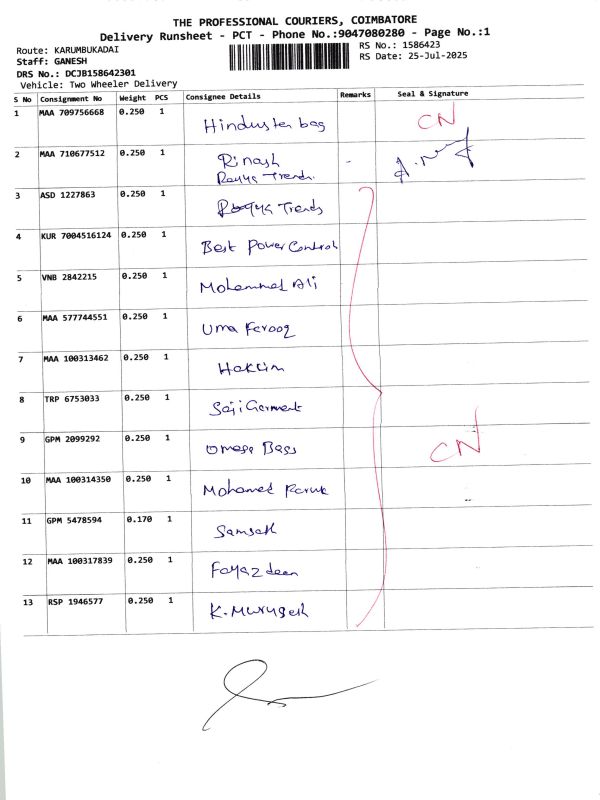 THE PROFESSIONAL COURIERS, COIMBATORE
Delivery Runsheet - PCT - Phone No.:9047080280 - Page No.:1
Route: KARUMBUKADAI
RS No.: 1586423
Staff: GANESH
RS Date: 25-Jul-2025
DRS No.: DCJB158642301
Vehicle: Two Wheeler Delivery
S No Consignment No Weight PCS Consignee Details Remarks Seal & Signature
1 MAA 709756668 0.250 1 Hindusten bag CN
2 MAA 710677512 0.250 1 Rinash -
Rayya Trends.
3 ASD 1227863 0.250 1 Trends
4 KUR 7004516124 0.250 1 Best Power Control
5 VNB 2842215 0.250 1 Mohammed Ali
6 MAA 577744551 0.250 1 Uma Farooq
7 MAA 100313462 0.250 1 Hakkim
8 TRP 6753033 0.250 1 Saji Garment
9 GPM 2099292 0.250 1 Omega Bags CN
10 MAA 100314350 0.250 1 Mohamed Faruk
11 GPM 5478594 0.170 1 Samsath
12 MAA 100317839 0.250 1 Fayaz deen
13 RSP 1946577 0.250 1 K. Murugesh